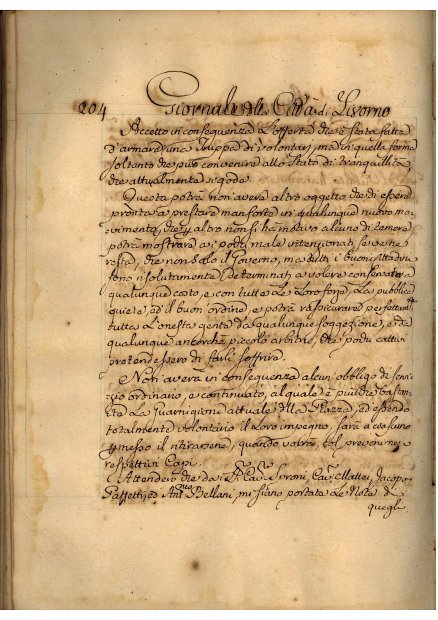 204 Giornale della Città di Livorno
Accetto in conseguenza l'offerta che è stata fatta
d'armare una truppa di volontarj, ma in quella forma
soltanto che può convenire allo Stato di tranquillità
che attualmente si gode.
Questa potrà non avere altro oggetto che di essere
pronta a prestare man forte in qualunque nuovo mo-
vimento, che altro non si hà motivo alcuno di temere
potrà mostrare ai pochi male intenzionati se ve ne
resta, che non solo il Governo, ma tutti i buoni Cittadini
sono risolutamente determinati a volere conservata a
qualunque costo, e con tutte le loro forze, la pubblica
quiete, ed il buon ordine, e potrà rassicurare perfettam.te
tutta l'onesta gente da qualunque soggezione, e da
qualunque ancorchè piccolo arbitrio, che pochi cattivi
pretendessero di farli soffrire.
Non averà in conseguenza alcun obbligo di servi-
zio ordinario, e continuato, al quale è più che bastan-
te la Guarnigione attuale della Piazza, ed essendo
totalmente volontario il loro impegno, sarà a ciascuno
permesso il ritirarsene, quando vorrà, col prevenirne i
respettivi Capi.
Attenderò che da i Cav. Cav. Mattei, Jacopo
ed Ant. Bellani, mi siano portate le Note di
quegli